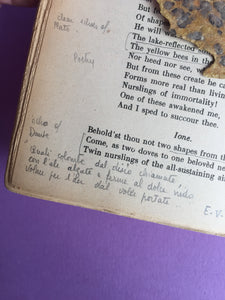 Of shapes
He
The lake-reflected
The yellow bees in th
Nor heed nor see,
But from these create he ca
Forms more real than livin
Nurslings of immortality!
One of these awakened me,
And I sped to succour thee.
Ione.
Behold'st thou not two shapes from th
Come, as two doves to one belovèd ne
Twin nurslings of the all-sustaining ai
clear echoes of
Poetry
echo of
Dante
Quali colombe dal disio chiamate
con l'ali alzate e ferme al dolce nido
per l'aer dal voler portate
E-V-